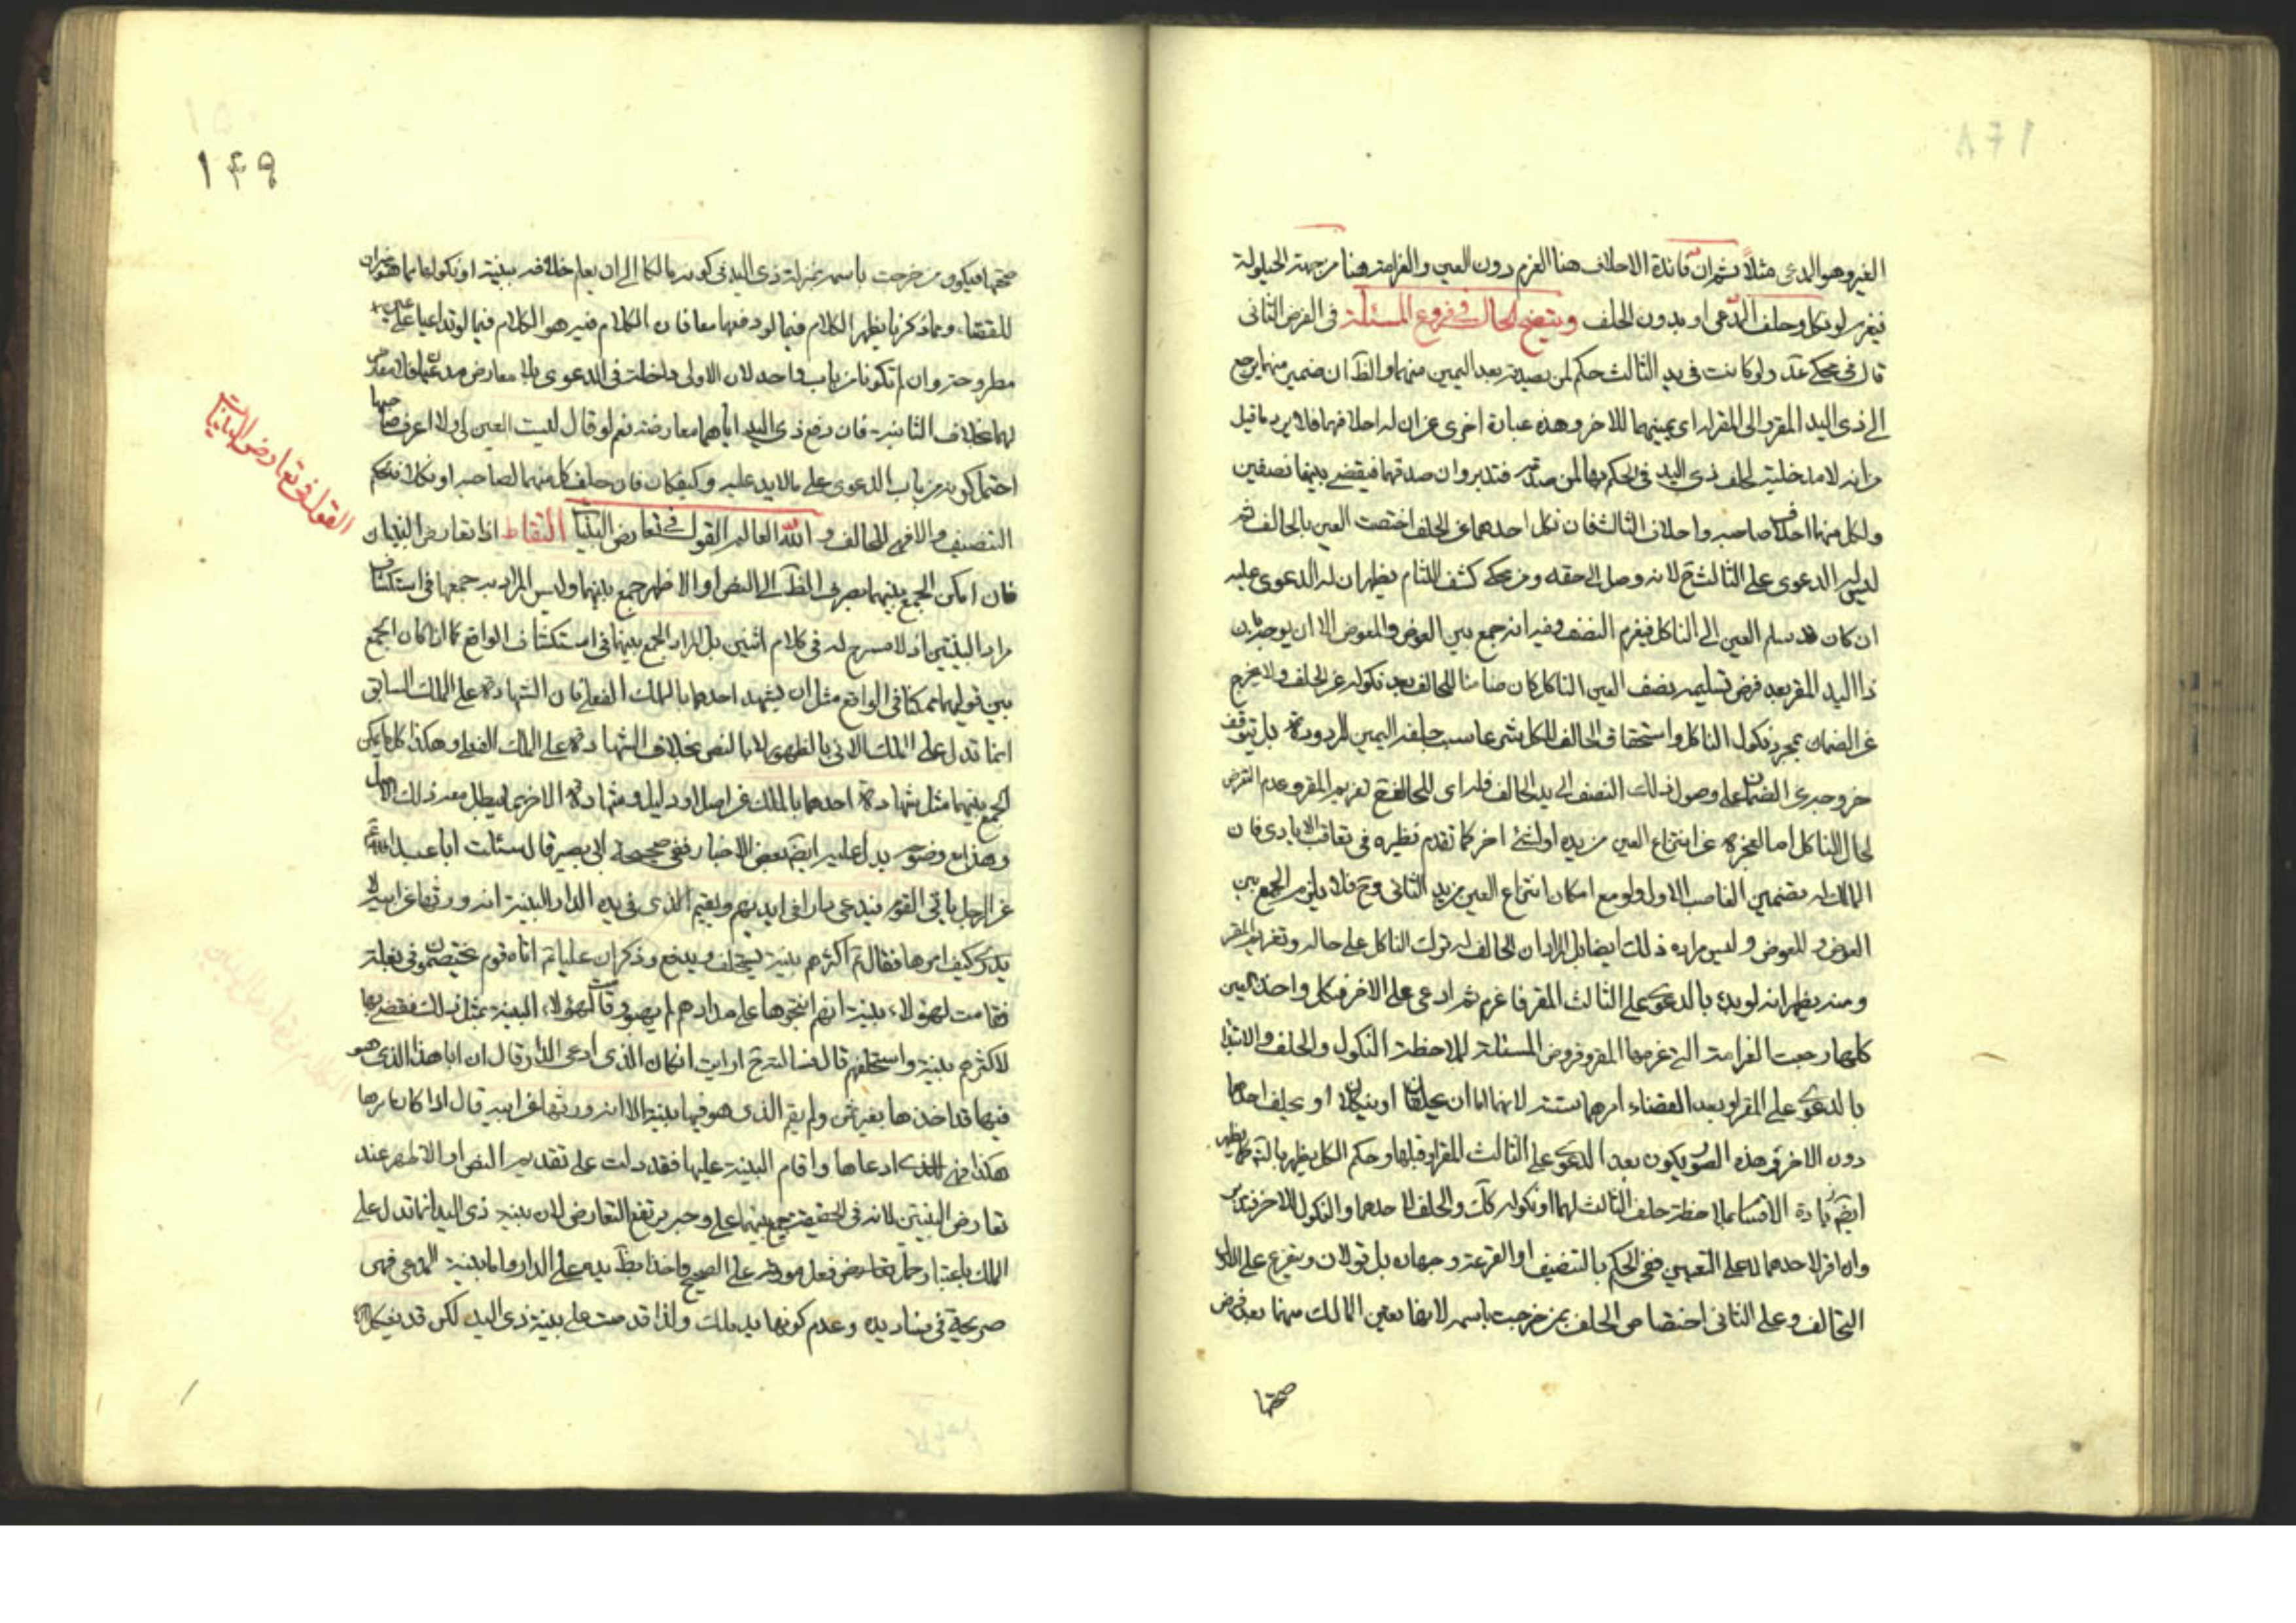 الغير وهو المدعى مثلاً ثم ان فائدة الاحلاف هنا الغرم دون العين والغرامة هنا من جهة الحيلولة
فيغرم لو نكل وحلف المدعى او بدون الحلف ويتضح الحال فى فروع المسئلة فى الفرض الثانى
قال فى محكى عد ولو كانت فى يد الثالث حكم لمن يصدقه بعد اليمين منهما والظ ان ضمير منهما يرجع
الى ذى اليد المقر والى المقر له اى يمينهما للاخر وهذه عبارة اخرى عن ان له احلافهما فلا يرد ما قيل
من انه لا مدخلية لحلف ذى اليد فى الحكم بها لمن صدقه فتدبر وان صدقهما فيقضى بينهما نصفين
ولكل منهما احلاف صاحبه واحلاف الثالث فان نكل احدهما عن الحلف اختصت العين بالحالف ثم
ليس له الدعوى على الثالث ح لانه وصل الى حقه ومن محكى كشف اللثام يظهر ان له الدعوى عليه
ان كان قد سلم العين الى الناكل فيغرم النصف وفيه انه جمع بين العوض والمعوض الا ان يوجه بان
ذا اليد المقر بعد فرض تسليمه نصف العين الناكل كان ضامنا للحالف بعد نكوله عن الحلف ولا يخرج
عن الضمان بمجرد نكول الناكل واستحقاق الحالف للكل شرعا بسبب حلفه اليمين المردودة بل يتوقف
خروجه عن الضمان على وصول ذلك النصف الى يد الحالف فله اى للحالف ح تغريم المقر وعدم التعرض
لحال الناكل اما لعجزه عن انتزاع العين من يده او لشئ اخر كما تقدم نظيره فى تعاقب الايادى فان
المالك له تضمين الغاصب الاول ولو مع امكان انتزاع العين من يد الثانى وح فلا يلزم الجمع بين
العوض والمعوض وليس مراده ذلك ايضا بل المراد ان الحالف له ترك الناكل على حاله وتغريم المقر
ومنه يظهر انه لو بدء بالدعوى على الثالث المقر فاغرم ثم ادعى على الاخر فنكل واخذ العين
كلها رجعت الغرامة التى غرمها المقر وفروض المسئلة بملاحظة النكول والحلف والابتداء
بالدعوى على المقر او بعد القضاء امرهما ستة لانهما اما ان يحلفان او ينكلان او يحلف احدهما
دون الاخر وفى هذه الصور يكون بعد الدعوى على الثالث المقر او قبلها وحكم الكل يظهر بالتامل كما يظهر
ايضا زيادة الاقسام بملاحظة حلف الثالث لهما او نكوله كك والحلف لاحدهما والنكول للاخر فتدبر
وان اقر لاحدهما لا على التعيين ففى الحكم بالتنصيف او القرعة وجهان بل قولان ويتفرع على الاول
التحالف وعلى الثانى اختصاص الحلف بمن خرجت باسمه لانها تعين المالك منهما بعد فرض
صحتها
١٤٩
صحتها فيكون من خرجت باسمه بمنزلة ذى اليد فى كونه مالكا الى ان يعلم خلافه ببينة او نكول
للقضاء ومما ذكرنا يظهر الكلام فيما لو دفعها معا فان الكلام فيه هو الكلام فيما لو تداعيا على عين
مطروحة وان لم تكونا من باب واحد لان الاولى داخلة فى الدعوى بلا معارض
لهما بخلاف الثانية فان دفع ذى اليد اياهما معارضة نعم لو قال ليست العين لى ولا اعرف صاحبها
احتمل كونه من باب الدعوى على ما لا يد عليه وكيفكان فان حلف كل منهما لصاحبه او نكلا فحكم
التنصيف والا فهى للحالف و الله العالم القول فى تعارض البينات التقاط اذا تعارض البينتان
القول فى تعارض البينات
فان امكن الجمع بينهما بصرف الظ الى النص او الاظهر جمع بينهما وليس المراد به جمعها فى استكشاف
مراد البينتين اذ لا مسرح له فى كلام اثنين بل المراد الجمع بينهما فى استكشاف الواقع كما اذا كان الجمع
بين قوليهما ممكنا فى الواقع مثل ان يشهد احدهما بالملك الفعلى فان الشهادة على الملك السابق
انما تدل على الملك الانى بالظهور لا بالنص بخلاف الشهادة على الملك الفعلى وهكذا كل ما يمكن
الجمع بينهما مثل شهادة احدهما بالملك عن اصل او دليل وشهادة الاخر بما يبطل معه ذلك الاصل
وهذا مع وضوحه يدل عليه ايضا بعض الاخبار ففى صحيحة ابى بصير قال سئلت ابا عبد الله
عن الرجل ياتى القوم فيدعى دارا فى ايديهم ويقيم الذى فى يده الدار البينة انه ورثها عن ابيه لا
يدرى كيف امرها فقال اكثرهم بينة يستحلف ويدفع وذكر ان عليا اتاه قوم يختصمون فى بغلة
فقامت لهؤلاء بينة انهم انتجوها على مذودهم لم يبيعوا وقامت لهؤلاء البينة بمثل ذلك فقضى بها
لاكثرهم بينة واستحلفهم قال فسالته ح ارايت ان كان الذى ادعى الدار قال ان ابا هذا الذى هو
فيها قد اخذها بغير ثمن ولم يقم الذى هو فيها بينة الا انه ورثها عن ابيه قال اذا كان امرها
هكذا فهى للذى ادعاها واقام البينة عليها فقد دلت على تقديم النص او الاظهر عند
تعارض البينتين لانه فى الحقيقة جمع بينهما على وجه يرتفع التعارض لان بينة ذى اليد انما تدل على
الملك باعتبار حمل فعل مورثه على الصحيح واخذا بظ يده على الدار واما بينة المدعى فهى
صريحة فى فساد يده وعدم كونها يد ملك ولذا قدمت على بينة ذى اليد لكن قد